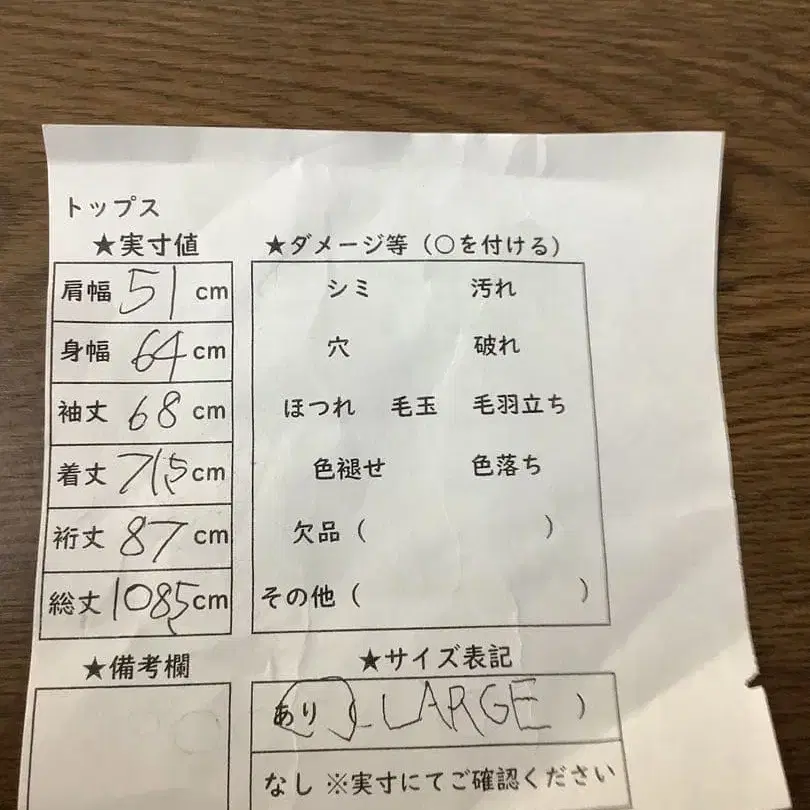 トップス
★実寸値
肩幅 51 cm
身幅 64 cm
袖丈 68 cm
着丈 71.5 cm
裄丈 87 cm
総丈 108.5 cm
★ダメージ等（○を付ける）
シミ 汚れ
穴 破れ
ほつれ 毛玉 毛羽立ち
色褪せ 色落ち
欠品（ ）
その他（ ）
★備考欄
★サイズ表記
あり（ LARGE ）
なし ※実寸にてご確認ください